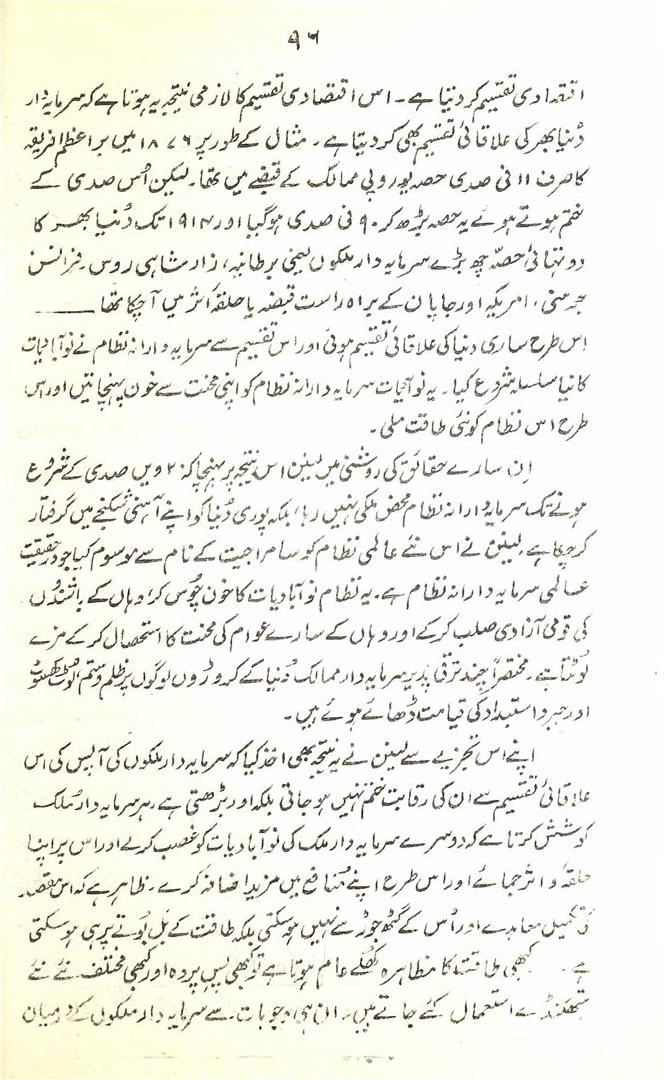 ۹۶
اقتصادی تقسیم کر دیتا ہے۔ اس اقتصادی تقسیم کا لازمی نتیجہ یہ ہوتا ہے کہ سرمایہ دار
دُنیا بھر کی علاقائی تقسیم بھی کر دیتا ہے۔ مثال کے طور پر ۱۸۷۶ میں براعظم افریقہ
کا صرف ۱۱ فی صدی حصہ یوروپی ممالک کے قبضے میں تھا۔ لیکن اُس صدی کے
ختم ہوتے ہوئے یہ حصہ بڑھ کر ۹۰ فی صدی ہو گیا اور ۱۹۱۴ تک دُنیا بھر کا
دو تہائی حصّہ چھ بڑے سرمایہ دار ملکوں یعنی برطانیہ، زار شاہی روس۔ فرانس
جرمنی، امریکہ اور جاپان کے براہ راست قبضہ یا حلقۂ اثر میں آ چکا تھا ــــــ
اس طرح ساری دنیا کی علاقائی تقسیم ہوئی اور اس تقسیم سے سرمایہ دارانہ نظام نے نوآبادیات
کا نیا سلسلہ شروع کیا۔ یہ نوآبادیات سرمایہ دارانہ نظام کو اپنی محنت سے خون پہنچاتیں اور اس
طرح اس نظام کو نئی طاقت ملی۔
اِن سارے حقائق کی روشنی میں لینن اس نتیجہ پر پہنچا کہ ۲۰ ویں صدی کے شروع
ہونے تک سرمایہ دارانہ نظام محض ملکی نہیں رہا، بلکہ پوری دُنیا کو اپنے آہنی شکنجے میں گرفتار
کر چکا ہے۔ لینن نے اس نئے عالمی نظام کو سامراجیت کے نام سے موسوم کیا جو درحقیقت
عالمی سرمایہ دارانہ نظام ہے۔ یہ نظام نوآبادیات کا خون چُوس کر، وہاں کے باشندوں
کی قومی آزادی صلب کر کے اور وہاں کے سارے عوام کی محنت کا استحصال کر کے مزے
لُوٹتا ہے۔ مختصراً چند ترقی پذیر سرمایہ دار ممالک دُنیا کے کروڑوں لوگوں پر ظلم و ستم، لُوٹ کھسوٹ
اور جبر و استبداد کی قیامت ڈھائے ہوئے ہیں۔
اپنے اس تجزیے سے لینن نے یہ نتیجہ بھی اخذ کیا کہ سرمایہ دار ملکوں کی آپس کی اس
علاقائی تقسیم سے ان کی رقابت ختم نہیں ہو جاتی بلکہ اور بڑھتی ہے۔ ہر سرمایہ دار مُلک
کوشش کرتا ہے کہ دوسرے سرمایہ دار ملک کی نوآبادیات کو غصب کرلے اور اس پر اپنا
حلقہ و اثر جمائے اور اس طرح اپنے مُنافع میں مزید اضافہ کرے۔ ظاہر ہے کہ اس مقصد
کی تکمیل معاہدے اور اُس کے گٹھ جوڑ سے نہیں ہو سکتی بلکہ طاقت کے بَل بُوتے پر ہی ہو سکتی
ہے۔ کبھی طاقت کا مظاہرہ کھُلے عام ہوتا ہے تو کبھی پسِ پردہ اور کبھی مختلف نئے نئے
ہتھکنڈے استعمال کئے جاتے ہیں۔ ان ہی وجوہات سے سرمایہ دار ملکوں کے درمیان